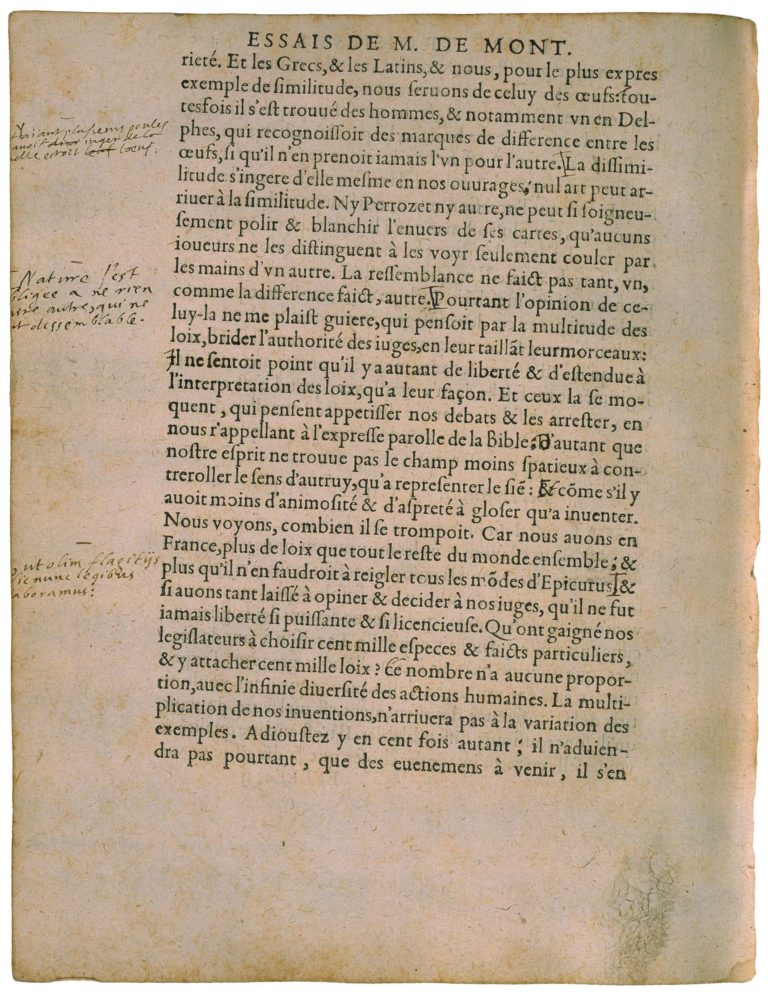 ESSAIS DE M. DE MONT.
rieté. Et les Grecs, & les Latins, & nous, pour le plus expres
exemple de ſimilitude, nous ſeruons de celuy des œufs: tou-
tesfois il s'eſt trouué des hommes, & notamment vn en Del-
phes, qui recognoiſſoit des marques de difference entre les
œufs, ſi qu'il n'en prenoit iamais l'vn pour l'autre. La diſſimi-
litude s'ingere d'elle meſme en nos ouurages, nul art peut ar-
riuer à la ſimilitude. Ny Perrozet ny autre, ne peut ſi ſoigneu-
ſement polir & blanchir l'enuers de ſes cartes, qu'aucuns
ioueurs ne les diſtinguent à les voyr ſeulement couler par
les mains d'vn autre. La reſſemblance ne faict pas tant, vn,
comme la difference faict, autre. Pourtant l'opinion de ce-
luy-la ne me plaiſt guiere, qui penſoit par la multitude des
loix, brider l'authorité des iuges, en leur taillãt leur morceaux:
Il ne ſentoit point qu'il y a autant de liberté & d'eſtendue à
l'interpretation des loix, qu'a leur façon. Et ceux la ſe mo-
quent, qui penſent appetiſſer nos debats & les arreſter, en
nous r'appellant à l'expreſſe parolle de la Bible; D'autant que
noſtre eſprit ne trouue pas le champ moins ſpatieux à con-
treroller le ſens d'autruy, qu'a repreſenter le ſiẽ: & cõme s'il y
auoit moins d'animoſité & d'aſpreté à gloſer qu'a inuenter.
Nous voyons, combien il ſe trompoit. Car nous auons en
France, plus de loix que tout le reſte du monde enſemble; &
plus qu'il n'en faudroit à reigler tous les mõdes d'Epicurus; &
ſi auons tant laiſſé à opiner & decider à nos iuges, qu'il ne fut
iamais liberté ſi puiſſante & ſi licencieuſe. Qu'ont gaigné nos
legiſlateurs à choiſir cent mille eſpeces & faicts particuliers,
& y attacher cent mille loix? Ce nombre n'a aucune propor-
tion, auec l'infinie diuerſité des actions humaines. La multi-
plication de nos inuentions, n'arriuera pas à la variation des
exemples. Adiouſtez y en cent fois autant; il n'aduien-
dra pas pourtant, que des euenemens à venir, il s'en
aiant plusieurs poules
iuger de
elle estoit l'oeuf.
Nature s'est
obligee a ne rien
autre, qui ne
dessemblable.
ut olim flagitijs
sic nunc legibus
laboramus.